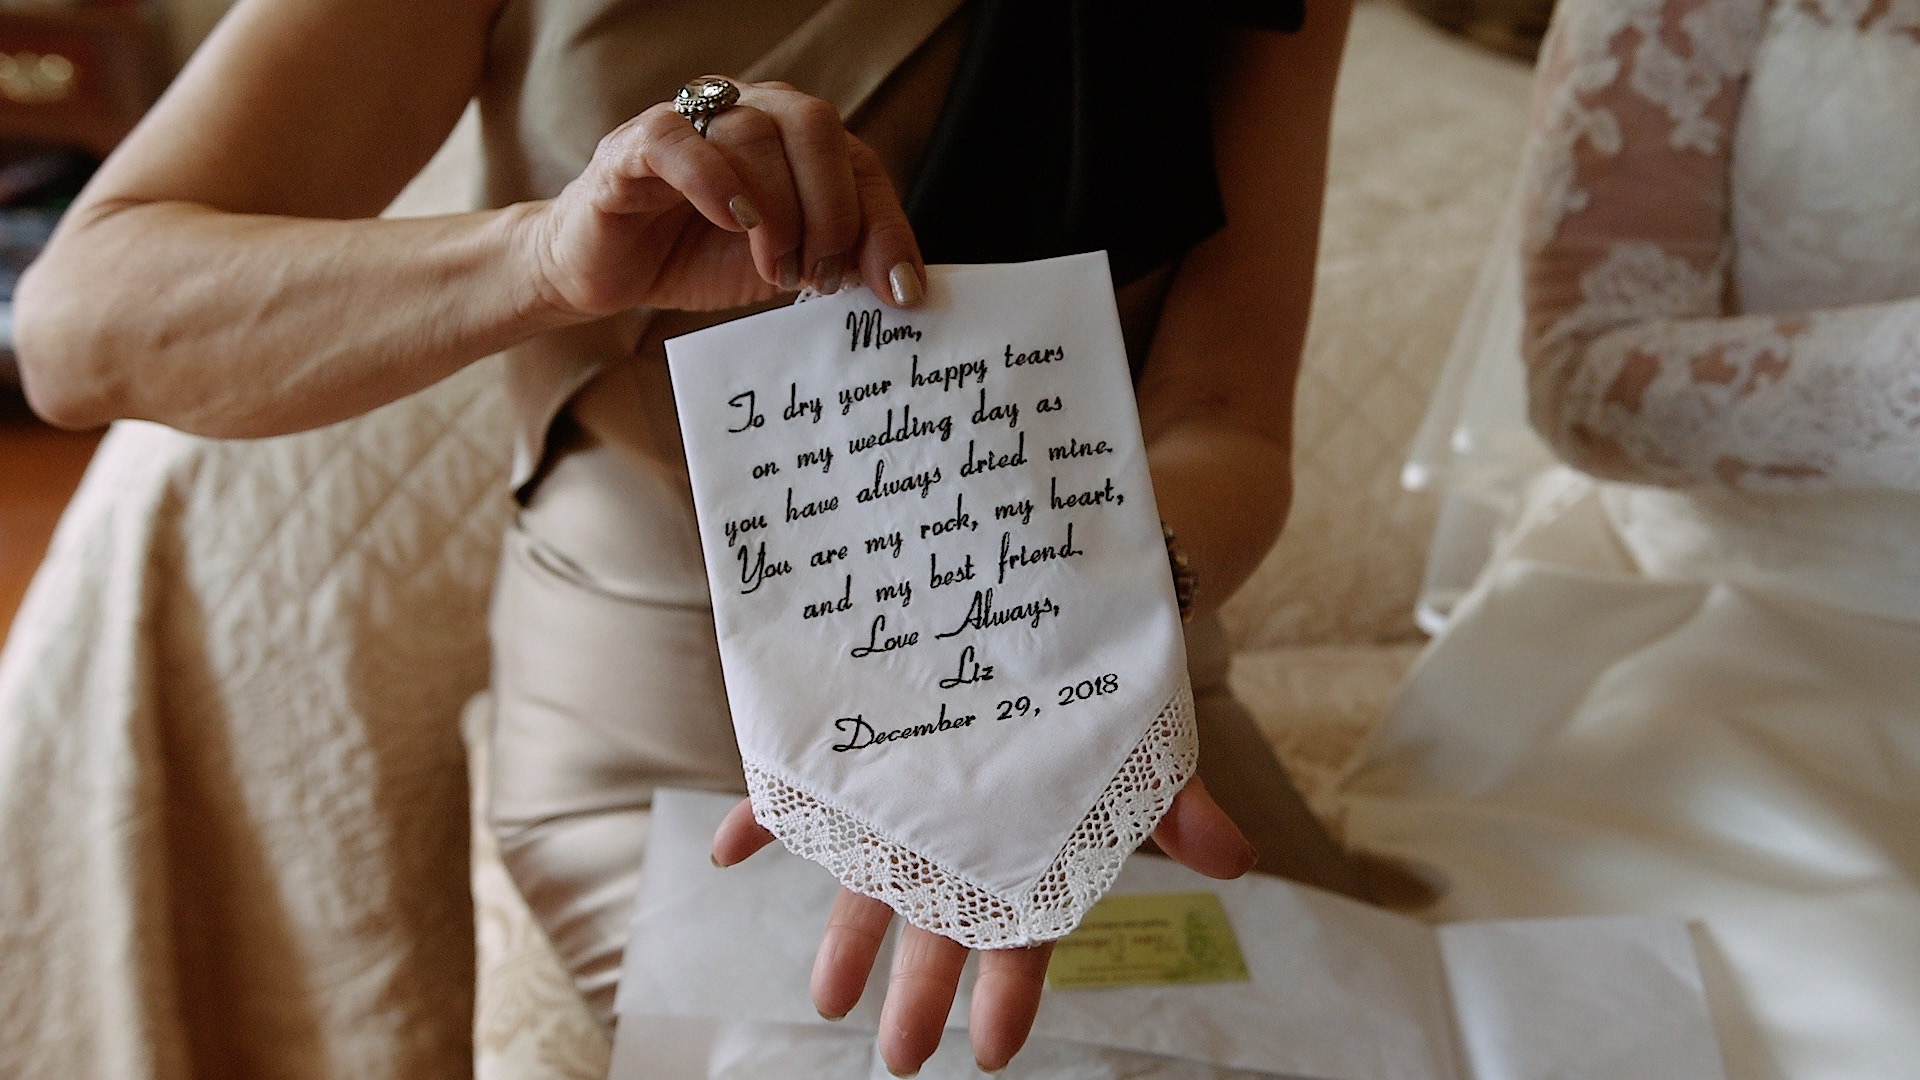 Mom,
To dry your happy tears
on my wedding day as
you have always dried mine.
You are my rock, my heart,
and my best friend.
Love Always,
Liz
December 29, 2018